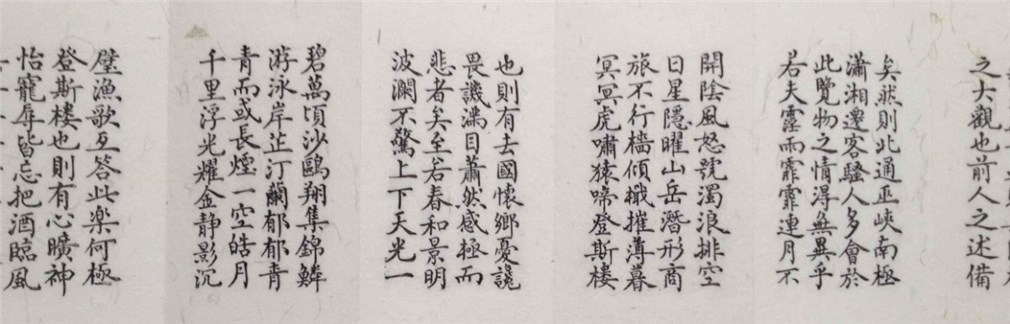 之大觀也前人之述備
矣然則北通巫峽南極
瀟湘遷客騷人多會於
此覽物之情淂無異乎
若夫霪雨霏霏連月不
開陰風怒號濁浪排空
日星隱曜山岳潛形商
旅不行檣傾檝摧薄暮
冥冥虎嘯猿啼登斯楼
也則有去國懷鄉憂讒
畏譏滿目蕭然感極而
悲者矣至若春和景明
波瀾不驚上下天光一
碧萬頃沙鷗翔集錦鱗
游泳岸芷汀蘭郁郁青
青而或長煙一空皓月
千里浮光耀金静影沉
璧漁歌互答此楽何極
登斯楼也則有心曠神
怡寵辱皆忘把酒臨風